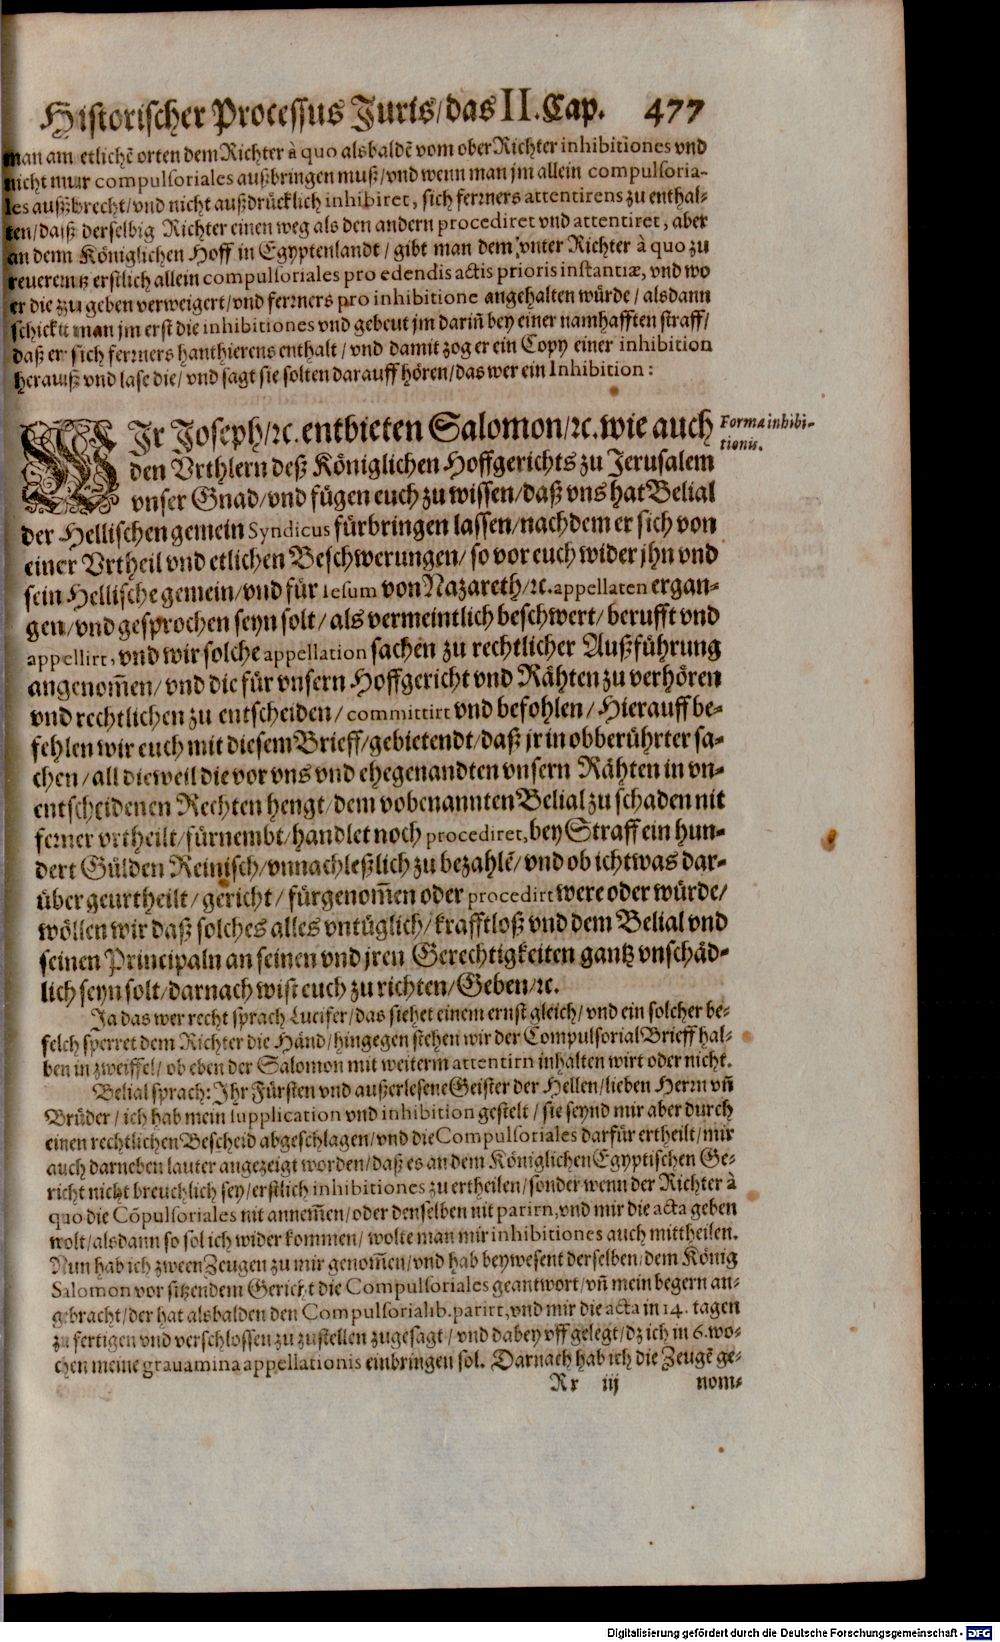 Historischer Processus Juris/das II.Cap. 477
man am etlichẽ orten dem Richter à quo alsbaldẽ vom ober Richter inhibitiones vnd
nicht nuur compulsoriales außbringen muß/vnd wenn man jm allein compulsoria-
les außbrecht/vnd nicht außdrücklich inhibiret, sich ferrners attentirens zu enthal-
ten/daß derselbig Richter einen weg als den andern procediret vnd attentiret, aber
an denn Königlichen Hoff in Egyptenlandt/gibt man dem vnter Richter à quo zu
reuerentz erstlich allein compulsoriales pro edendis actis prioris instantiæ, vnd wo
er die zu geben verweigert/vnd ferrners pro inhibitione angehalten würde/alsdann
schickt man jm erst die inhibitiones vnd gebeut jm dariñ bey einer namhafften straff/
daß er sich ferrners hanthierens enthalt/vnd damit zog er ein Copy einer inhibition
herauß vnd lase die/vnd sagt sie solten darauff hören/das wer ein Inhibition:
WJr Joseph/ꝛc. entbieten Salomon/ꝛc. wie auch
Forma inhibi-
tionis.
den Vrthlern deß Königlichen Hoffgerichts zu Jerusalem
vnser Gnad/vnd fügen euch zu wissen/daß vns hat Belial
der Hellischen gemein Syndicus fürbringen lassen/nach dem er sich von
einer Vrtheil vnd etlichen Beschwerungen/so vor euch wider jhn vnd
sein Hellische gemein/vnd für Iesum von Nazareth/ꝛc. appellaten ergan-
gen/vnd gesprochen seyn solt/als vermeintlich beschwert/berufft vnd
appellirt, vnd wir solche appellation sachen zu rechtlicher Außführung
angenom̃en/vnd die für vnsern Hoffgericht vnd Rähten zu verhören
vnd rechtlichen zu entscheiden/committirt vnd befohlen/Hierauff be-
fehlen wir euch mit diesem Brieff/gebietendt/daß jr in obberührter sa-
chen/all dieweil die vor vns vnd ehegenandten vnsern Rähten in vn-
entscheidenen Rechten hengt/dem vobenannten Belial zu schaden nit
ferner vrtheilt/fürnembt/handlet noch procediret, bey Straff ein hun-
dert Gülden Reinisch/vnnachleßlich zu bezahlẽ/vnd ob ichtwas dar-
über geurtheilt/gericht/fürgenom̃en oder procedirt were oder würde/
wöllen wir daß solches alles vntüglich/krafftloß vnd dem Belial vnd
seinen Principaln an seinen vnd jren Gerechtigkeiten gantz vnschäd-
lich seyn solt/darnach wist euch zu richten/Geben/ꝛc.
Ja das wer recht sprach Lucifer/das siehet einem ernst gleich/vnd ein solcher be-
felch sperret dem Richter die Händ/hingegen stehen wir der Compulsorial Brieff hal-
ben in zweiffel/ob eben der Salomon mit weiterm attentirn inhalten wirt oder nicht.
Belial sprach: Ihr Fürsten vnd außerlesene Geister der Hellen/lieben Herrn vñ
Brüder/ich hab mein supplication vnd inhibition gestelt/sie seynd mir aber durch
einen rechtlichen Bescheid abgeschlagen/vnd die Compulsoriales darfür ertheilt/mir
auch darneben lauter angezeigt worden/daß es an dem Königlichen Egyptischen Ge-
richt nicht breuchlich sey/erstlich inhibitiones zu ertheilen/sonder wenn der Richter à
quo die Cõpulsoriales nit annem̃en/oder denselben nit parirn, vnd mir die acta geben
wolt/alsdann so sol ich wider kommen/wolte man mir inhibitiones auch mittheilen.
Nun hab ich zween Zeugen zu mir genom̃en/vnd hab beywesent derselben/dem König
Salomon vor sitzendem Gericht die Compulsoriales geantwort/vñ mein begern an-
gebracht/der hat alsbalden den Compulsorialib. parirt, vnd mir die acta in 14. tagen
zu fertigen vnd verschlossen zu zustellen zugesagt/vnd dabey vff gelegt/dz ich in 6. wo-
chen meine grauamina appellationis einbringen sol. Darnach hab ich die Zeugẽ ge-
Rr iij nom-
Digitalisierung gefördert durch die Deutsche Forschungsgemeinschaft - DFG